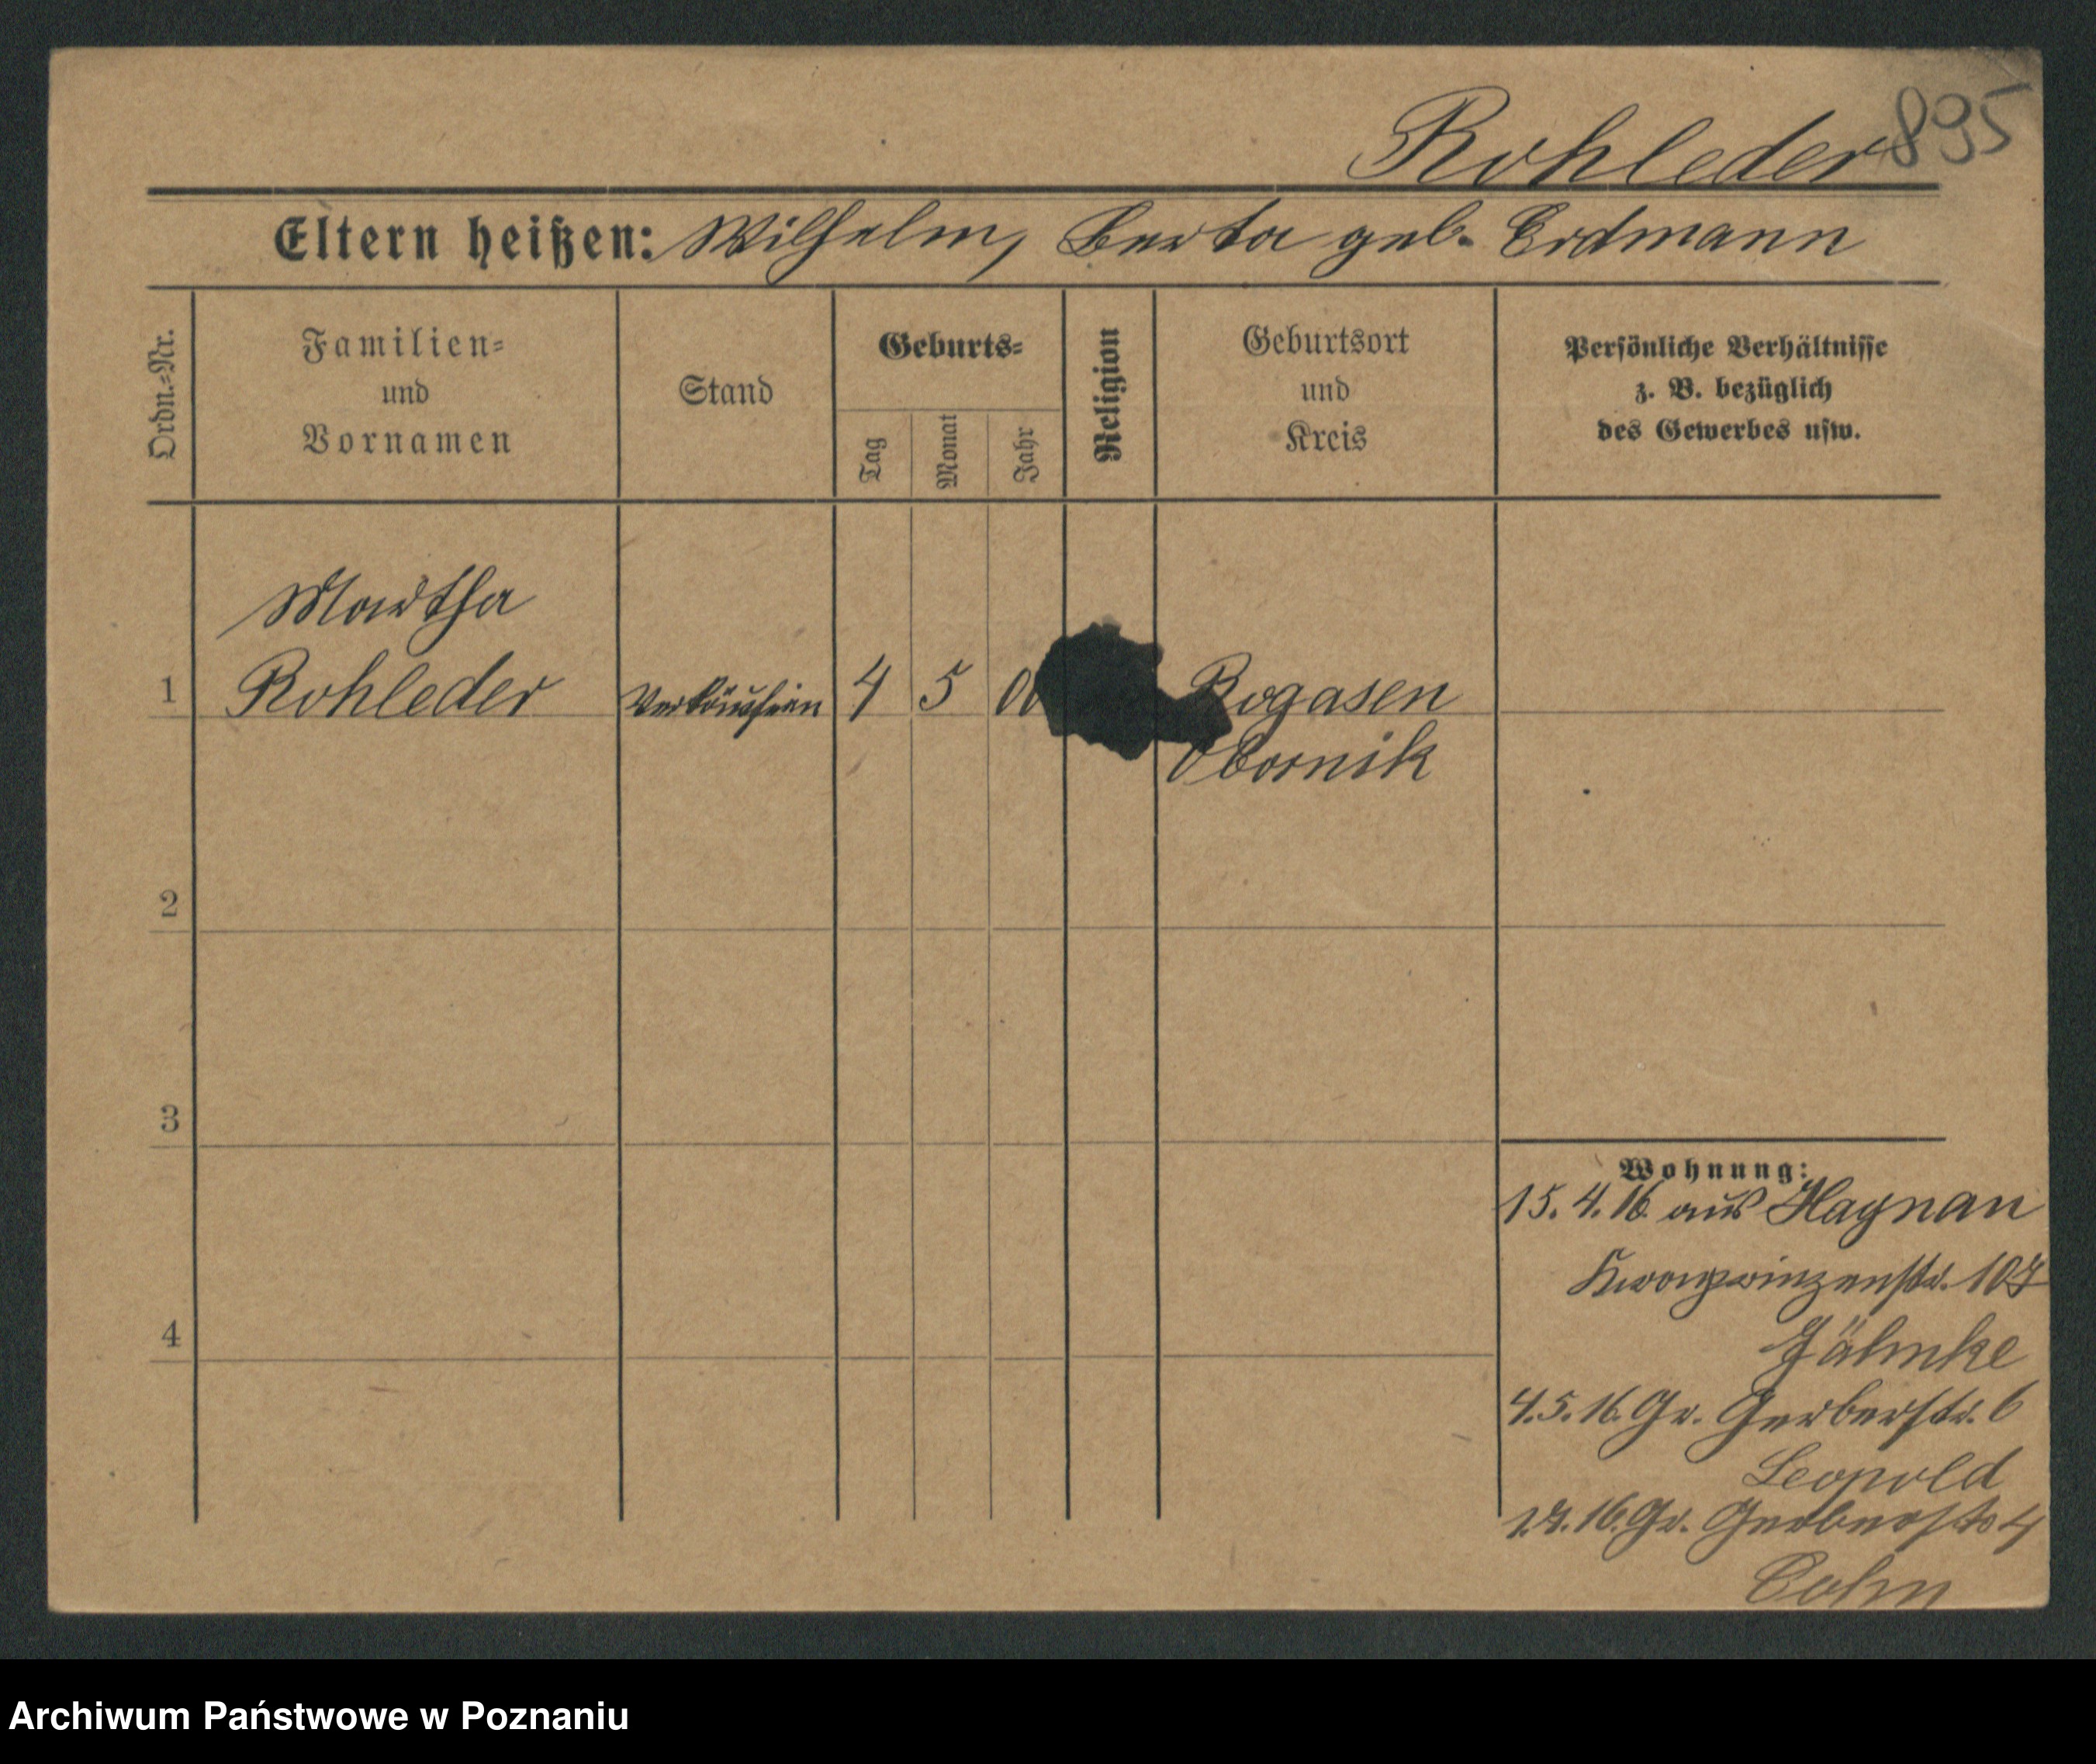 895
Rohleder
Eltern heißen: Wilhelm, Berta geb. Erdmann
Ordn.-Nr.
Familien-
und
Vornamen
Stand
Geburts-
Tag
Monat
Jahr
Religion
Geburtsort
und
Kreis
Persönliche Verhältnisse
z. B. bezüglich
des Gewerbes usw.
Martha
1 Rohleder Verkäuferin 4 5 Rogasen
Obornik
2
3
4
Wohnung:
15. 4. 16. aus Hagnau
Kronprinzenstr. 107
Jähnke
4. 5. 16. Gr. Gerberstr. 6
Leopold
16. Gr. Gerberstr 4
Cohn
Archiwum Państwowe w Poznaniu